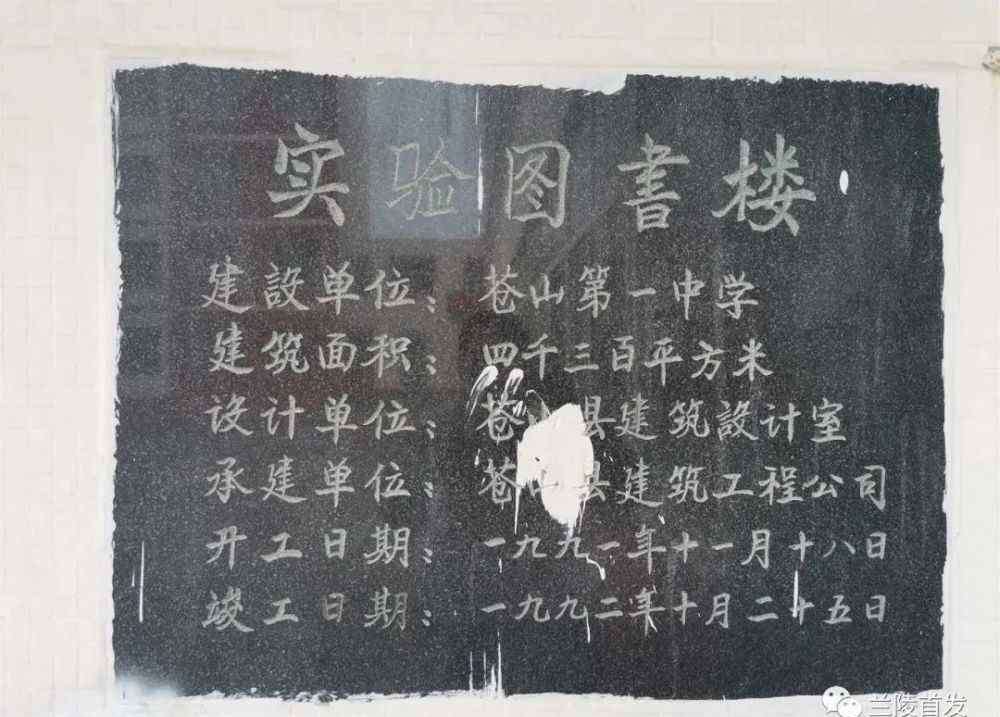 实验图書楼
建設单位：苍山第一中学
建筑面积：四千三百平方米
设计单位：苍山县建筑設计室
承建单位：苍山县建筑工程公司
开工日期：一九九一年十一月十八日
竣工日期：一九九二年十月二十五日
兰陵首发